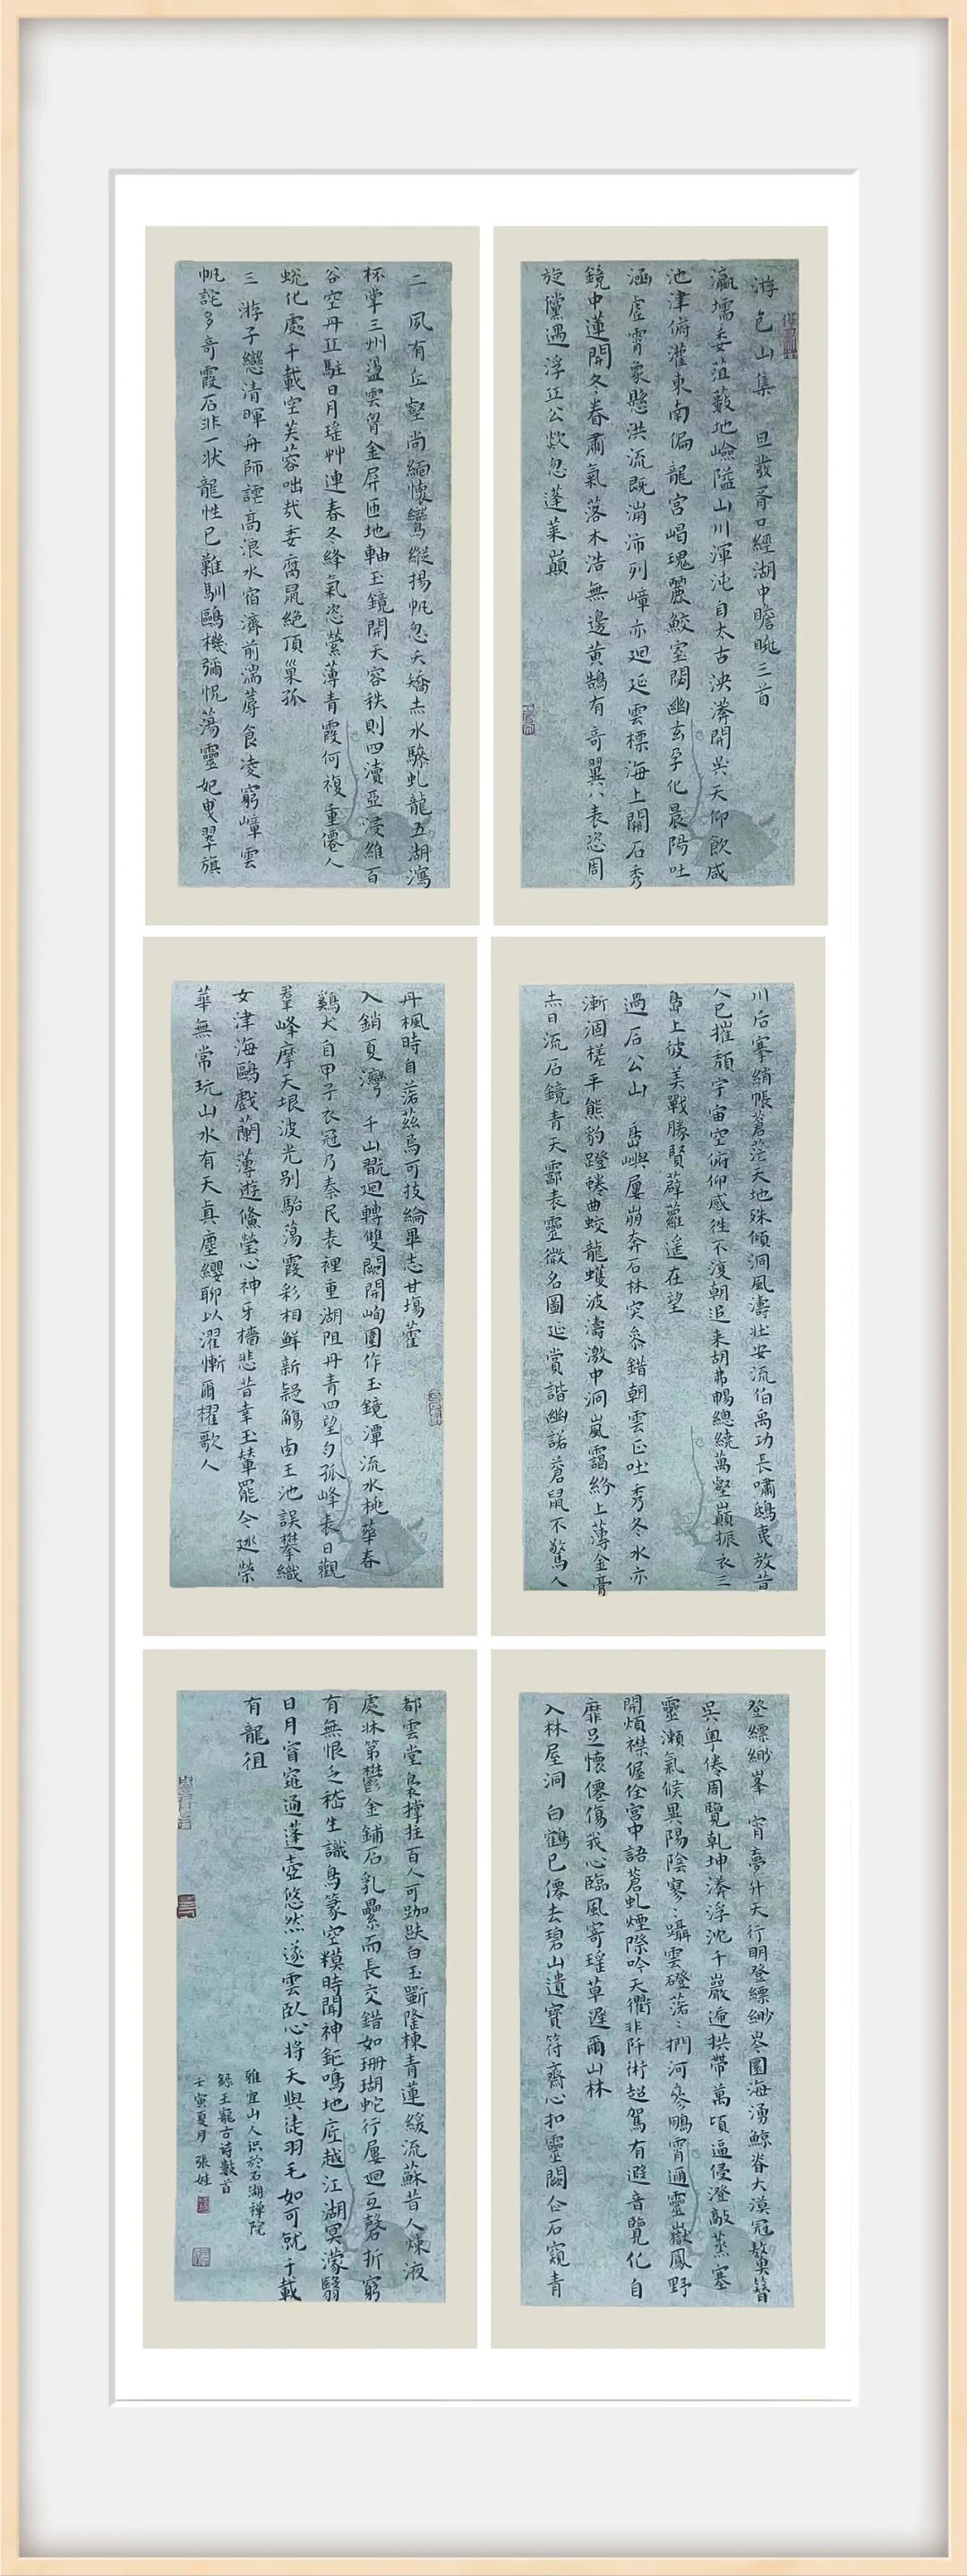 游包山集 旦發胥口經湖中瞻眺三首
瀛壖委菹藪地嶮隘山川渾沌自太古泱漭開吳天仰飲咸
池津俯灌東南偏龍宮嵑瑰麗鮫室閟幽玄孕化晨陽吐
涵虛霄象懸洪流既漰沛列嶂亦迴延雲標海上關石秀
鏡中蓮開冬春肅氣落木浩無邊黃鵠有奇翼八表恣周
旋儻遇浮丘公欻忽蓬萊巔
二 夙有丘壑尚緬懷鸞縱揚帆忽夭矯赤水驂虬龍五湖瀉
杯掌三州盪雲胷金屏匝地軸玉鏡開天容秩則四瀆亞浸維百
谷空丹丘駐日月瑤艸連春冬絳氣恣縈薄青霞何複重僊人
蛻化處千載空芙蓉咄哉委腐鼠絕頂巢孤
三 游子戀清暉舟師誣高浪水宿濟前湍蓐食凌窮嶂雲
帆詫多奇霞石非一狀龍性已難馴鷗機彌怳蕩靈妃曳翠旗
川后搴綃帳蒼茫天地殊傾洞風濤壯安流伯禹功長嘯鴟夷放昔
人已摧頹宇宙空俯仰感往不復朝追來胡弗暢總繞萬壑巔振衣三
島上彼美戰勝賢薜蘿遥在望
過石公山 島嶼屢崩奔石林突叅錯朝雲正吐秀冬水亦
漸涸槎平熊豹蹬蜷曲蛟龍蠖波濤激中洞嵐靄紛上薄金膏
赤日流石鏡青天霩表靈徵名圖延賞諧幽諾蒼鼠不驚人
丹楓時自落茲焉可投綸畢志甘塲藿
入銷夏灣 千山翫迴轉雙闕開峋圍作玉鏡潭流水桃華春
鷄犬自甲子衣冠乃秦民表裡重湖阻丹青四望勻孤峰表日觀
羣峰摩天垠波光别駘蕩霞彩相鮮新疑觴西王池誤攀織
女津海鷗戲蘭薄遊鯈瑩心神牙檣悲昔幸玉輦罷今巡榮
華無常玩山水有天真塵纓聊以濯慚爾櫂歌人
登縹緲峯 宵夢升天行明登縹緲岑圜海湧鯨脊大漠冠鼇簪
吳粵倦周覽乾坤漭浮沈千巖遞拱帶萬頃逼侵澄敲蒸塞
靈瀨氣候異陽陰寥寥躡雲磴落落捫河叅鵬霄逥靈嶽鳳野
開煩襟偓佺宮中語蒼虬煙際吟天衢非阡術超駕有遐音覽化自
靡足懷僊傷我心臨風寄瑶草遲爾山林
入林屋洞 白鶴已僊去碧山遺寶符齋心扣靈闕仚石窺青
都雲堂裊撑拄百人可跏趺白玉斸隆棟青蓮緩流蘇昔人煉液
處牀第鬱金鋪石乳纍而長交錯如珊瑚蛇行屢迴互磬折窮
有無恨乏嵇生識鳥篆空糢時聞神鉅鳴地底越江湖冥濛翳
日月窅窕通蓬壺悠然遂雲臥心將天與徒羽毛如可就千載
有龍徂
雅宜山人識於石湖禪院
録王寵古詩數首
壬寅夏月 張姓